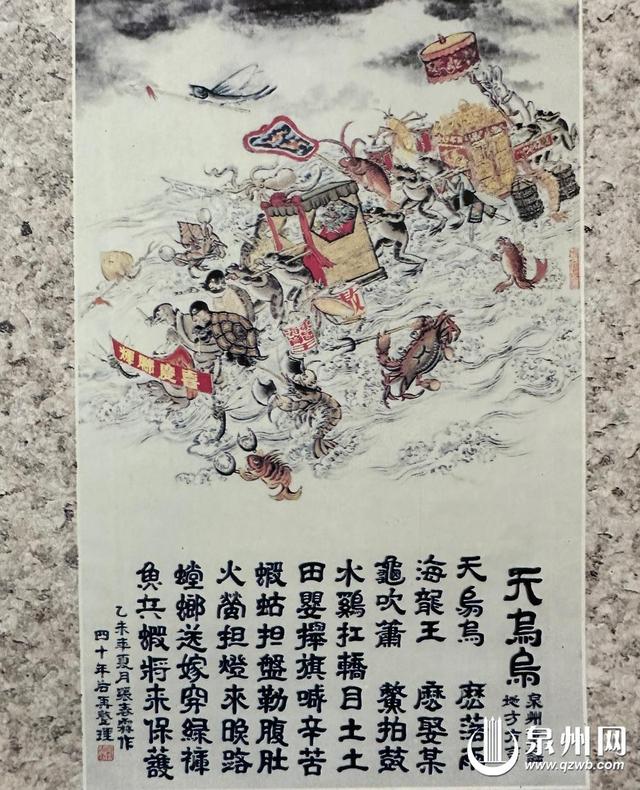 天烏烏
泉州
地方
天烏烏 麽落雨
海龍王 麽娶某
龜吹簫 鱉拍鼓
水鷄扛轎目土土
田嬰攑旗喊辛苦
蝦蛄担盤勒腹肚
火螢担燈來 路
螳螂送嫁穿綠褲
魚共蝦將來保護
乙未年夏月張 霖作
四十年后再整理
泉州网
www.qzwb.com